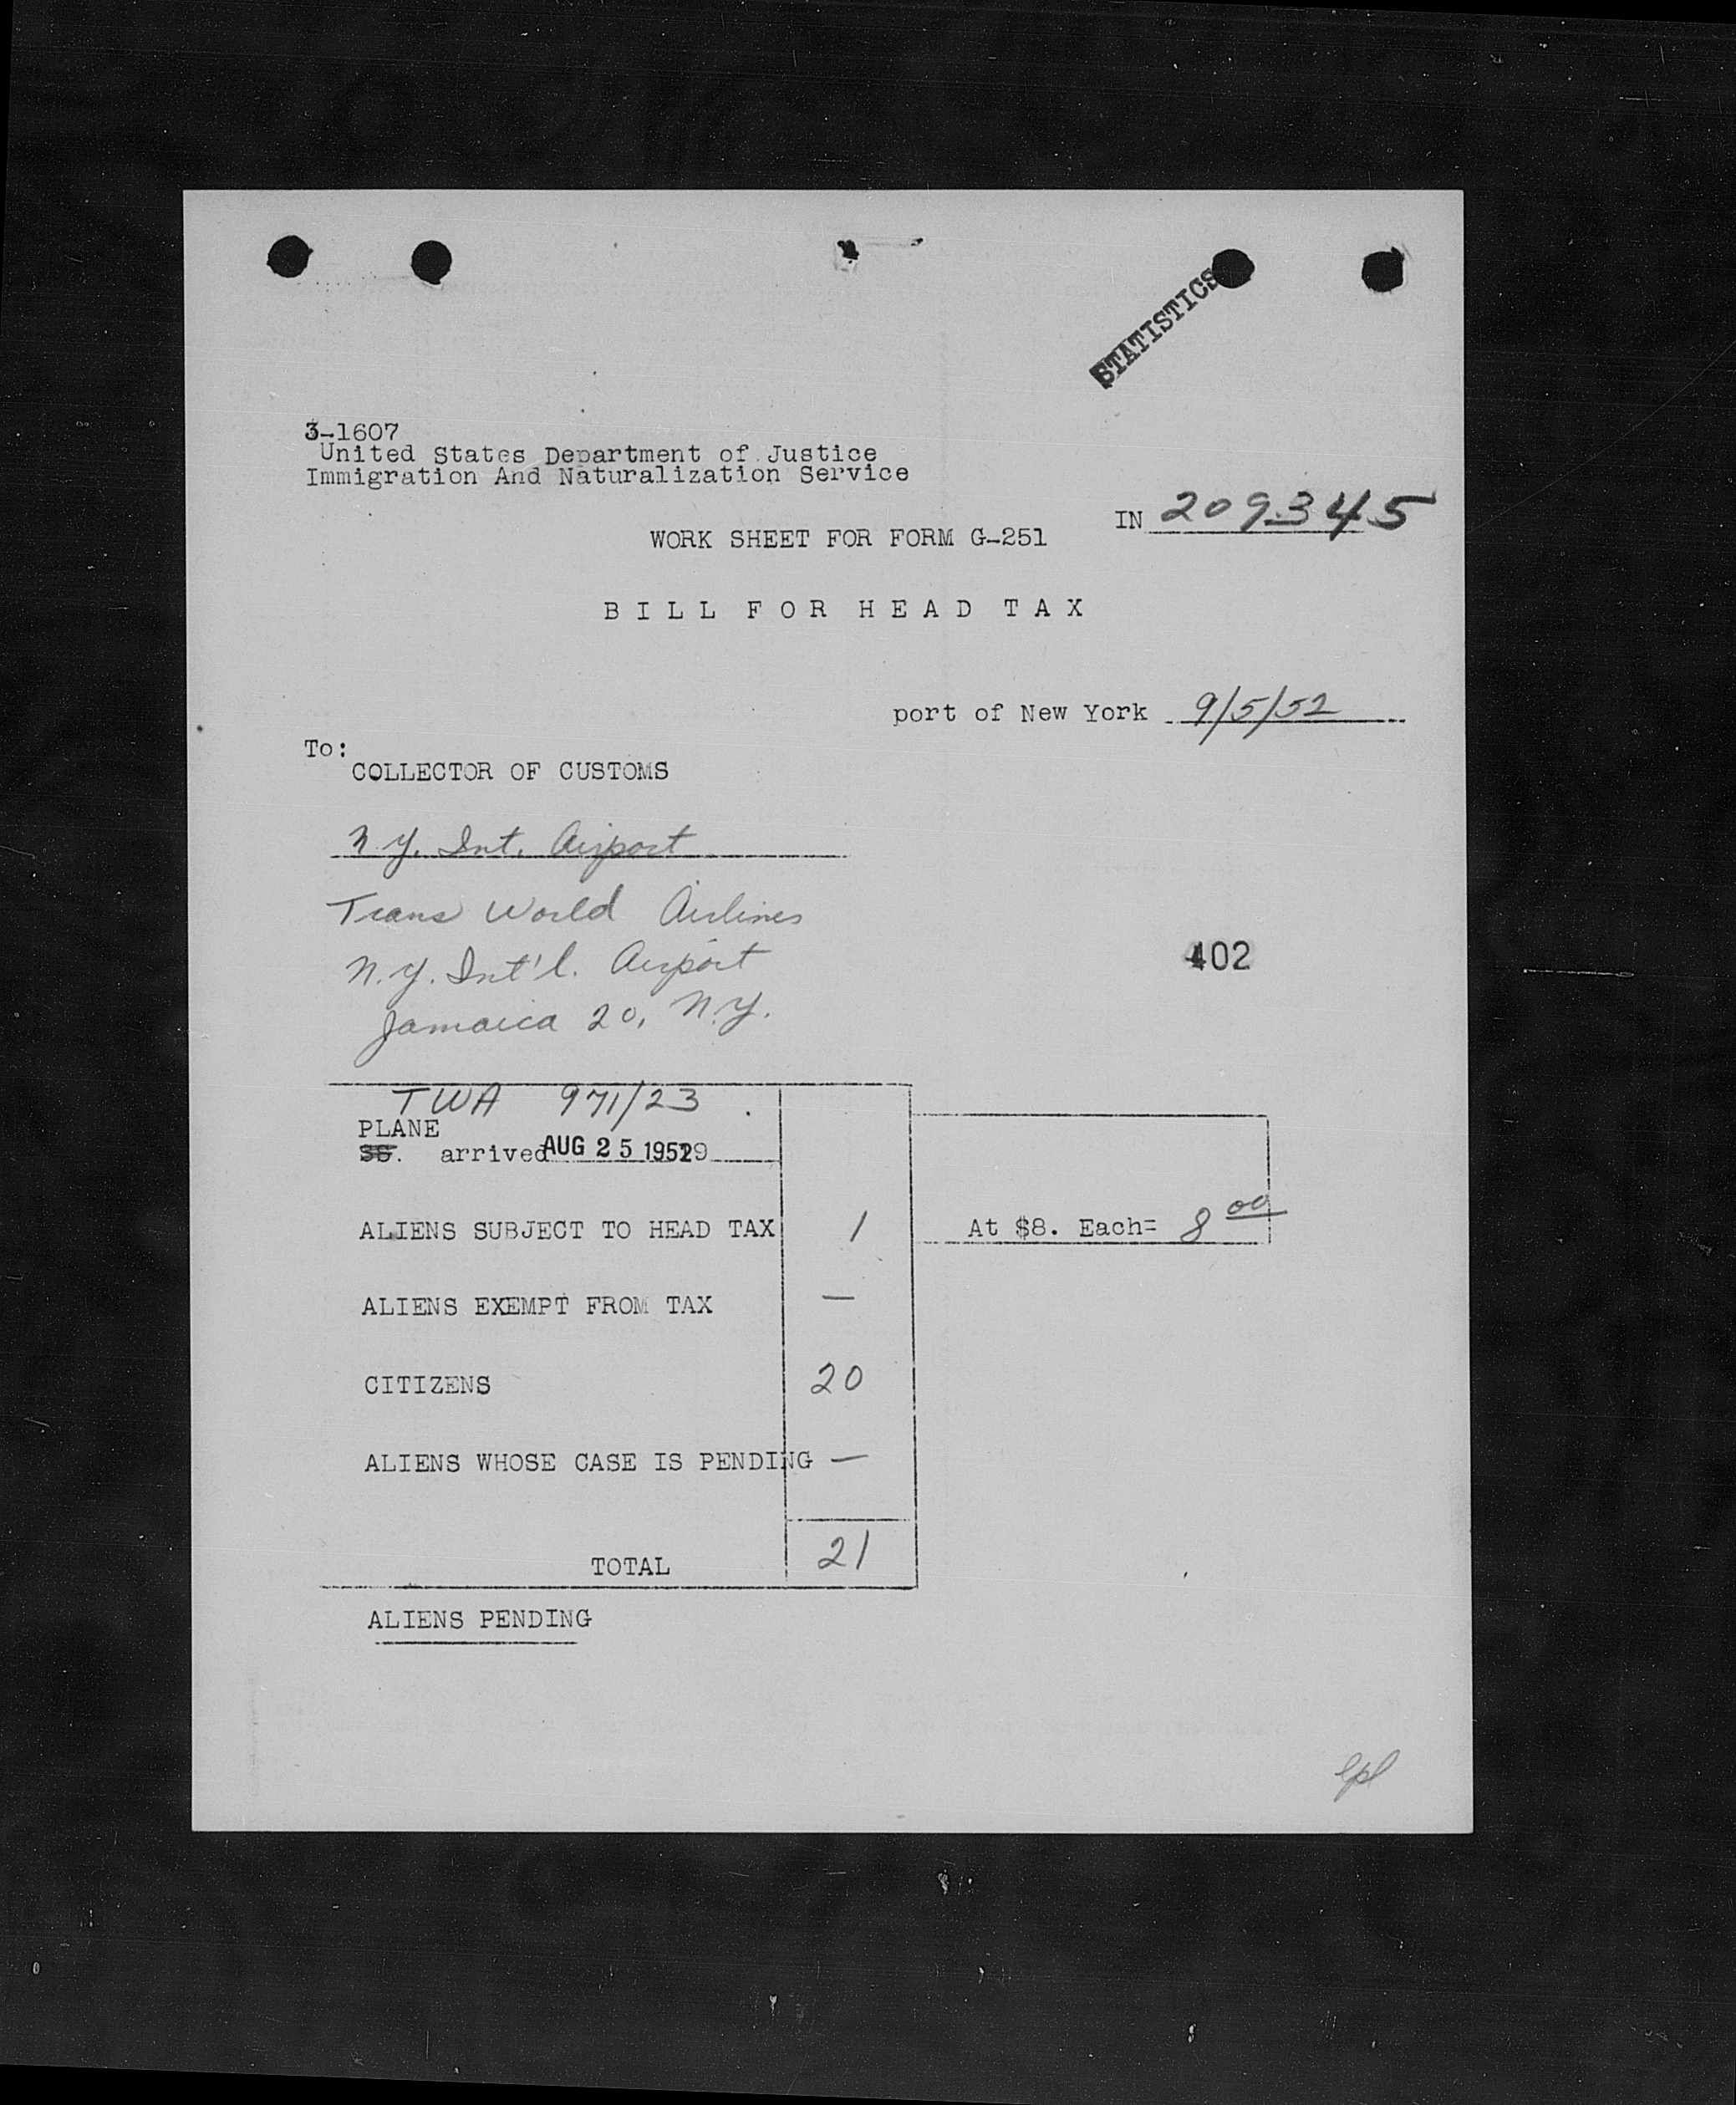 STATISTICS
3-1607
United States Department of Justice
Immigration And Naturalization Service
IN 209345
WORK SHEET FOR FORM G-251
BILL FOR HEAD TAX
port of New York 9/5/52
To:
COLLECTOR OF CUSTOMS
N.Y. Int. Airport
Trans World Airlines
N.Y. Int'l. Airport
Jamaica 20, N.Y.
402
TWA 971/23
PLANE
SS. arrived AUG 25 1952 19
ALIENS SUBJECT TO HEAD TAX 1 At $8. Each= 8 00
ALIENS EXEMPT FROM TAX —
CITIZENS 20
ALIENS WHOSE CASE IS PENDING —
TOTAL 21
ALIENS PENDING